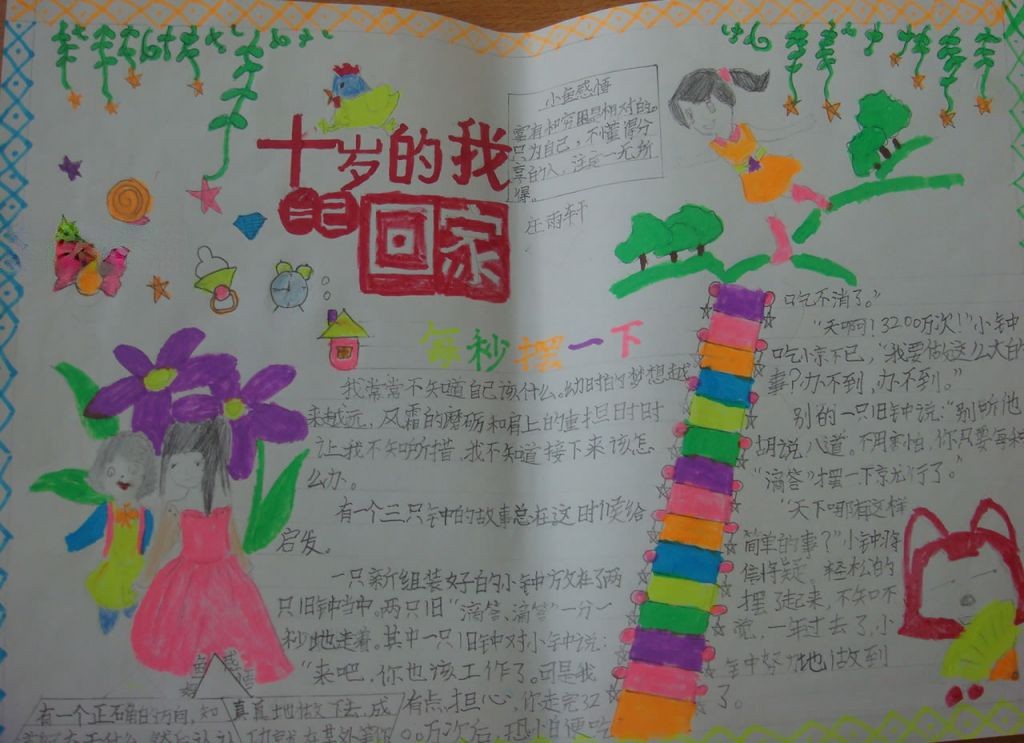 十岁的我
回家
小鱼感悟
富有和穷困是相对的。
只为自己，不懂得分
享的人，注定一无所
得。
庄雨轩
每秒摆一下
我常常不知道自己该什么。幼时的梦想越
来越远，风霜的磨砺和肩上的重担时时
让我不知所措，我不知道接下来该怎
么办。
有一个三只钟的故事总在这时候给
启发。
一只新组装好的小钟放在了两
只旧钟当中，两只旧“滴答、滴答”一分一
秒地走着。其中一只旧钟对小钟说：
“来吧，你也该工作了。可是我
有点担心，你走完32
00万次后，恐怕便
吃不消了。”
“天啊！3200万次！”小钟
吃惊不已，“我要做这么大的
事？办不到，办不到。”
别的一只旧钟说：“别听他
胡说八道。不用害怕，你只要每秒
“滴答”摆一下就行了。”
“天下哪有这样
简单的事？”小钟将
信将疑，轻松的
摆了起来，不知不
觉，一年过去了，小
钟努力地做到
了。
感
悟
有一个正确的方向，知
真真地做下去，成